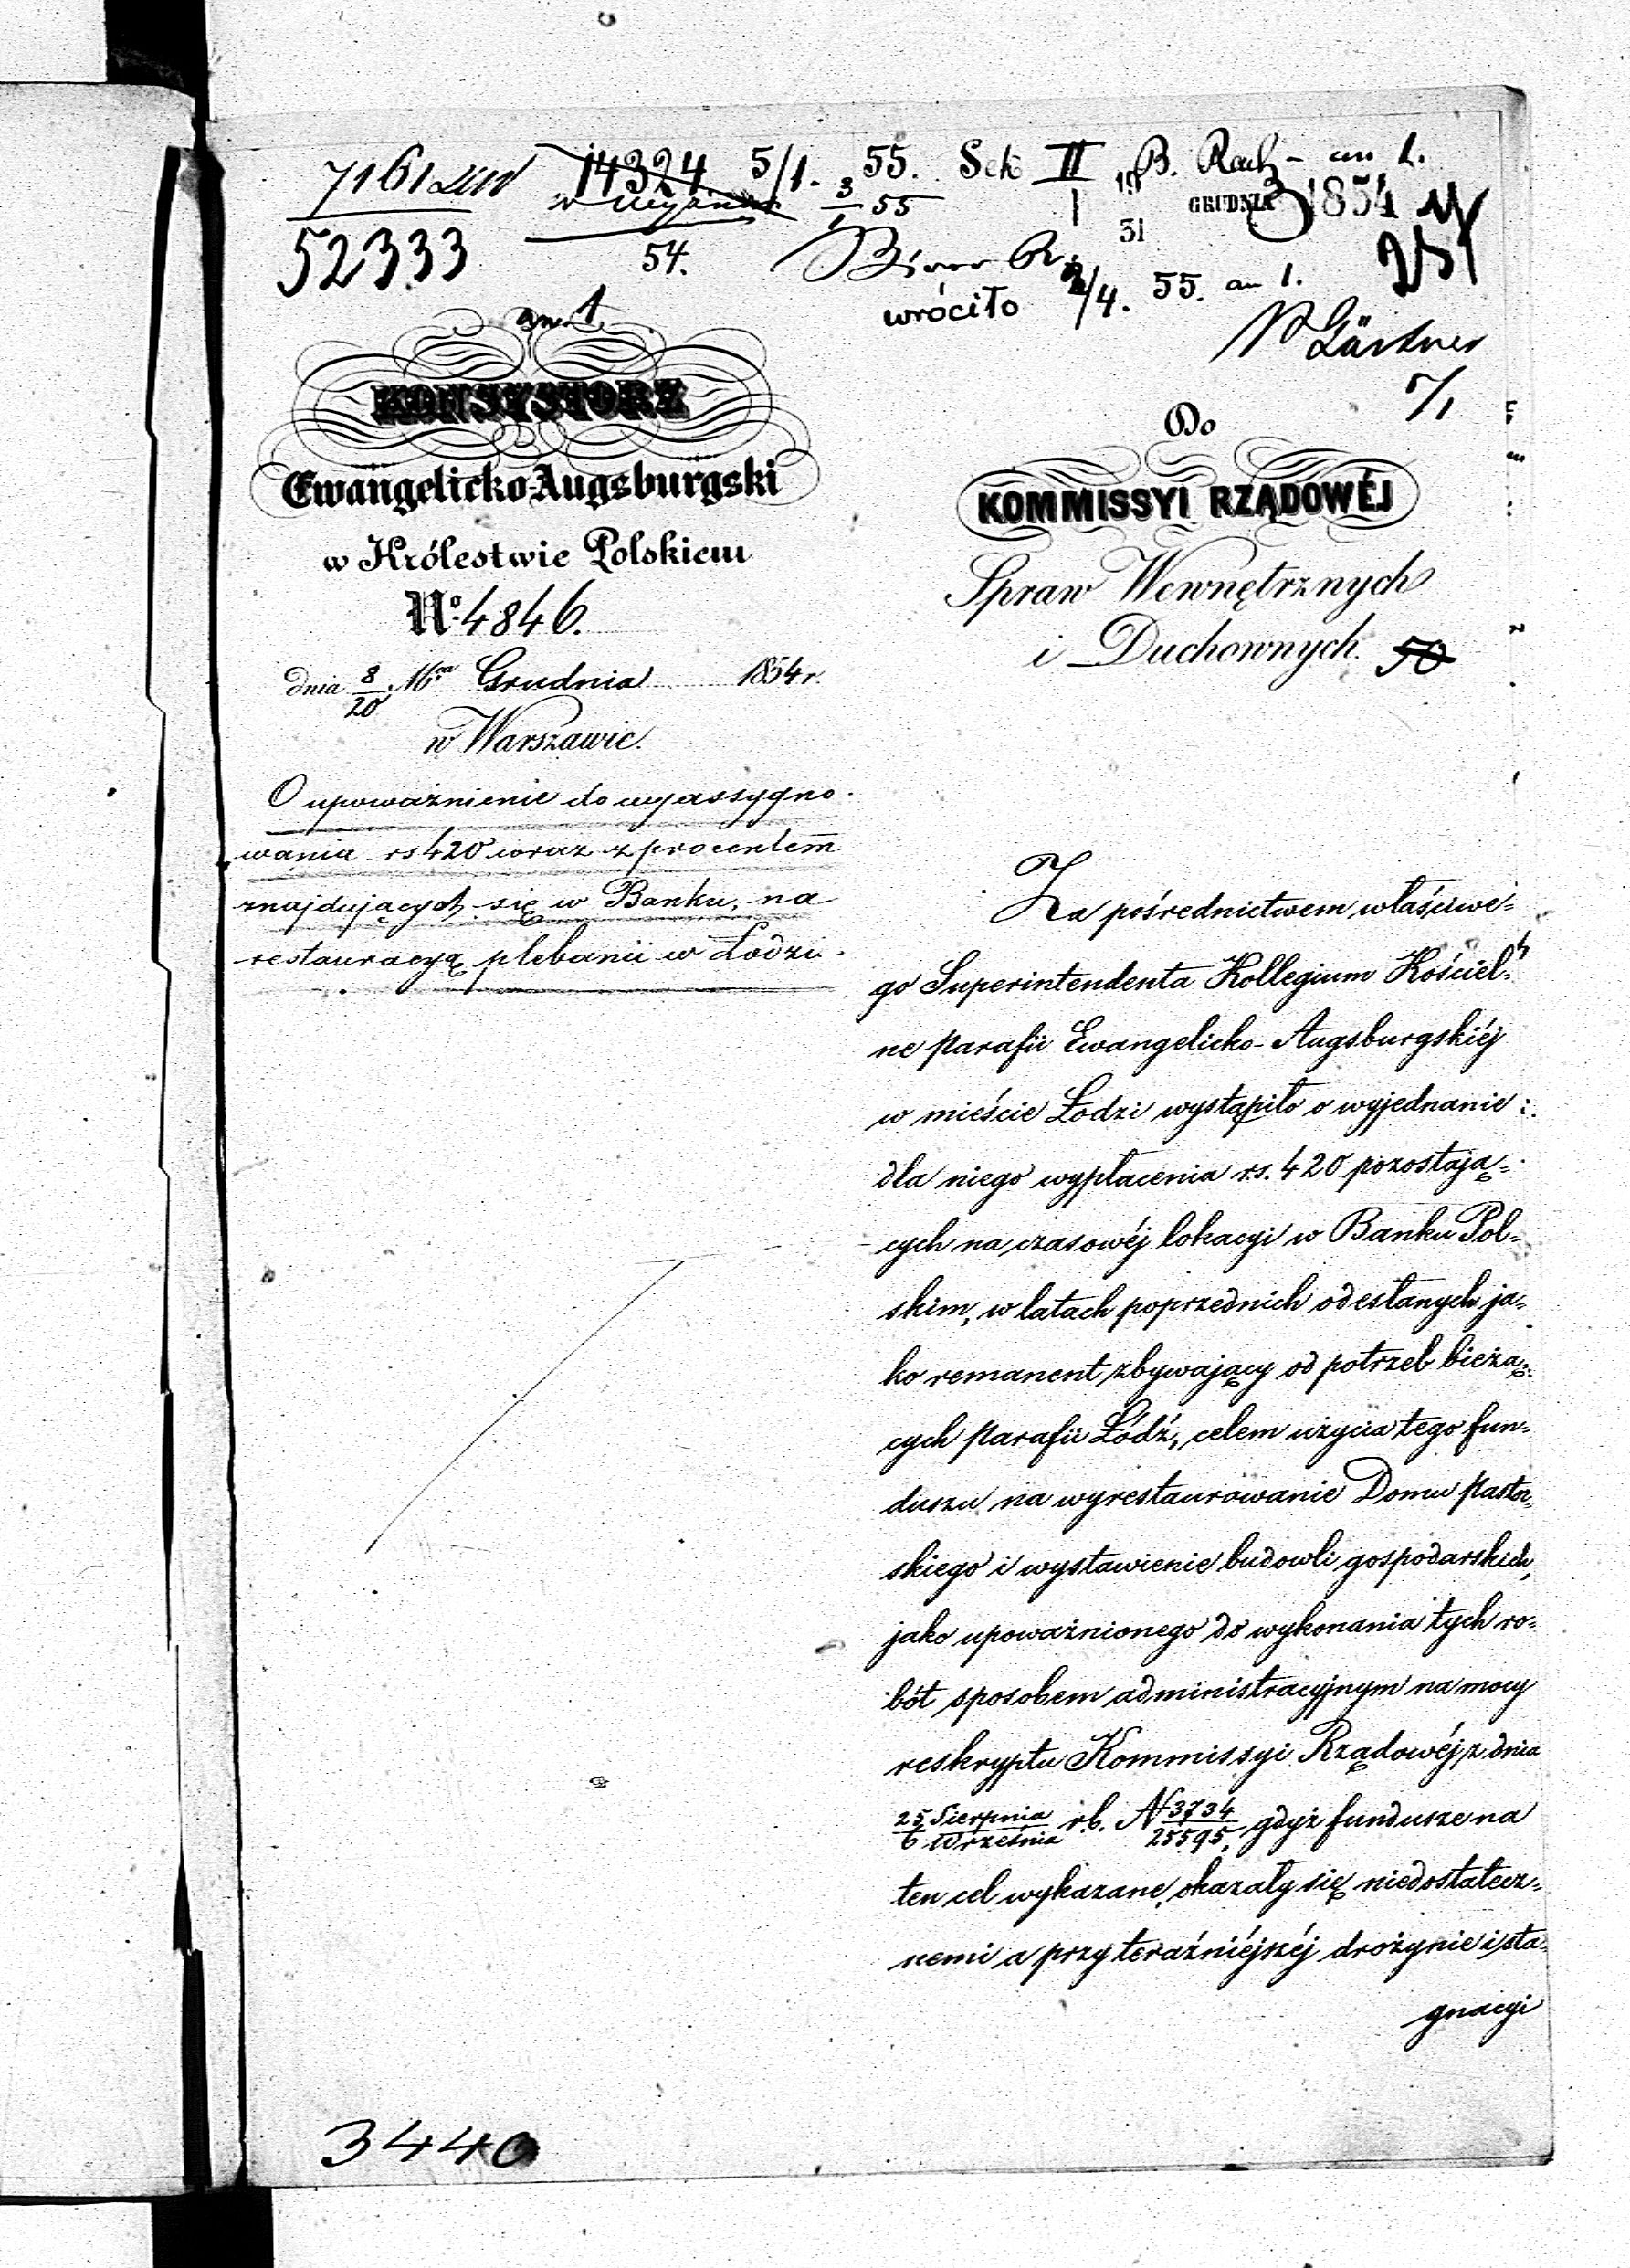 7161
52333
14324 5/1. 55. Sek II B. Rach- an 1.
3/1 55
54.
19
31
GRUDNIA 1854
wróciło 2/4. 55. an 1.
Gärtner
7/1
an. 1
KONSYSTORZ
Ewangelicko Augsburgski
w Królestwie Polskiem
No. 4846.
dnia 8/20 Mca Grudnia 1854 r.
w Warszawie.
O upoważnienie do wyassygno-
wania rs 420 wraz z procentem
znajdujących się w Banku, na
restauracyą plebanii w Łodzi.
Do
KOMMISSYI RZĄDOWÉJ
Spraw Wewnętrznych
i Duchownych.
50
Za pośrednictwem właściwe=
go Superintendenta Kollegium Kościel=
ne Parafii Ewangelicko-Augsburgskiéj
w mieście Łodzi wystąpiło o wyjednanie
dla niego wypłacenia rs. 420 pozostają=
cych na czasowéj lokacyi w Banku Pol=
skim, w latach poprzednich odesłanych ja=
ko remanent zbywający od potrzeb bieżą=
cych Parafii Łódź, celem użycia tego fun=
duszu na wyrestaurowanie Domu Pastor=
skiego i wystawienie budowli gospodarskich,
jako upoważnionego do wykonania tych ro=
bót sposobem administracyjnym na mocy
reskryptu Kommissyi Rządowéj z dnia
25 Sierpnia/6 Września r.b. N 3734/25595, gdyż fundusze na
ten cel wykazane, okazały się niedostatecz=
nemi a przy teraźniéjszéj drożynie i sta=
gnacyi
3440